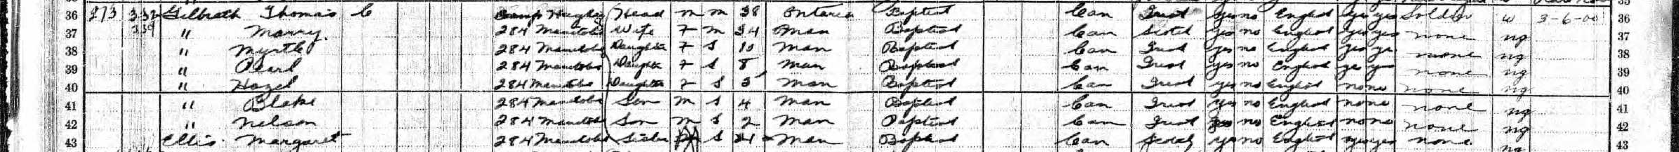 36 273 332 Gilbrath Thomas C Camp Hughes Head m m 38 Ontario Baptist Can Irish yes no English yes yes Soldier w 3-6-00 36
37 " Marry 284 Manitoba Wife F m 34 Man Baptist Can Scotch yes no English yes yes none ng 37
38 " Myrtle 284 Manitoba Daughter F S 10 Man Baptist Can Irish yes no English yes ye none ng 38
39 " Pearl 284 Manitoba Daughter F S 8 Man Baptist Can Irish yes no English ye ye none ng 39
40 " Hazel 284 Manitoba Daughter F S 5 Man Baptist Can Irish yes no English none none ng 40
41 " Blake 284 Manitoba Son m S 4 Man Baptist Can Irish yes no English none none ng 41
42 " Nelson 284 Manitoba Son m S 2 Man Baptist Can Irish no English none none ng 42
43 Ellis Margaret 284 Manitoba Sister S 21 Man Baptist Can Scotch yes no English yes yes none ng 43